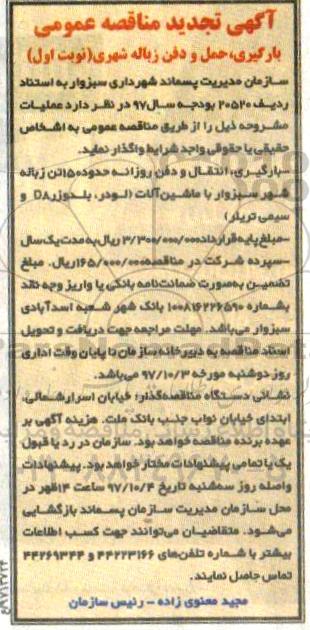 آگهی تجدید مناقصه عمومی
بارگیری، حمل و دفن زباله شهری (نوبت اول)
سازمان مدیریت پسماند شهرداری سبزوار به استناد
ردیف ۲۰۵۲۰ بودجه سال ۹۷ در نظر دارد عملیات
مشروحه ذیل را از طریق مناقصه عمومی به اشخاص
حقیقی یا حقوقی واجد شرایط واگذار نماید.
-بارگیری، انتقال و دفن روزانه حدود ۱۵۰تن زباله
شهر سبزوار با ماشین‌آلات (لودر، بلدوزر D۸ و
سیمی تریلر)
-مبلغ پایه قرارداد ۳/۳۰۰/۰۰۰/۰۰۰ ریال به مدت یک سال
-سپرده شرکت در مناقصه ۱۶۵/۰۰۰/۰۰۰ریال. مبلغ
تضمین به‌صورت ضمانت‌نامه بانکی یا واریز وجه نقد
بشماره ۱۰۰۸۱۶۲۲۶۵۹۰ بانک شهر شعبه اسدآبادی
سبزوار می‌باشد. مهلت مراجعه جهت دریافت و تحویل
اسناد مناقصه به دبیرخانه سازمان تا پایان وقت اداری
روز دوشنبه مورخه ۹۷/۱۰/۳ می‌باشد.
نشانی دستگاه مناقصه‌گذار: خیابان اسرار شمالی،
ابتدای خیابان نواب جنب بانک ملت. هزینه آگهی بر
عهده برنده مناقصه خواهد بود. سازمان در رد یا قبول
یک یا تمامی پیشنهادات مختار خواهد بود. پیشنهادات
واصله روز سه‌شنبه تاریخ ۹۷/۱۰/۴ ساعت ۱۴ظهر در
محل سازمان مدیریت سازمان پسماند بازگشایی
می‌شود. متقاضیان می‌توانند جهت کسب اطلاعات
بیشتر با شماره تلفن‌های ۴۴۲۲۳۱۶۶ و ۴۴۲۶۹۳۴۴
تماس حاصل نمایند.
مجید معنوی زاده - رئیس سازمان